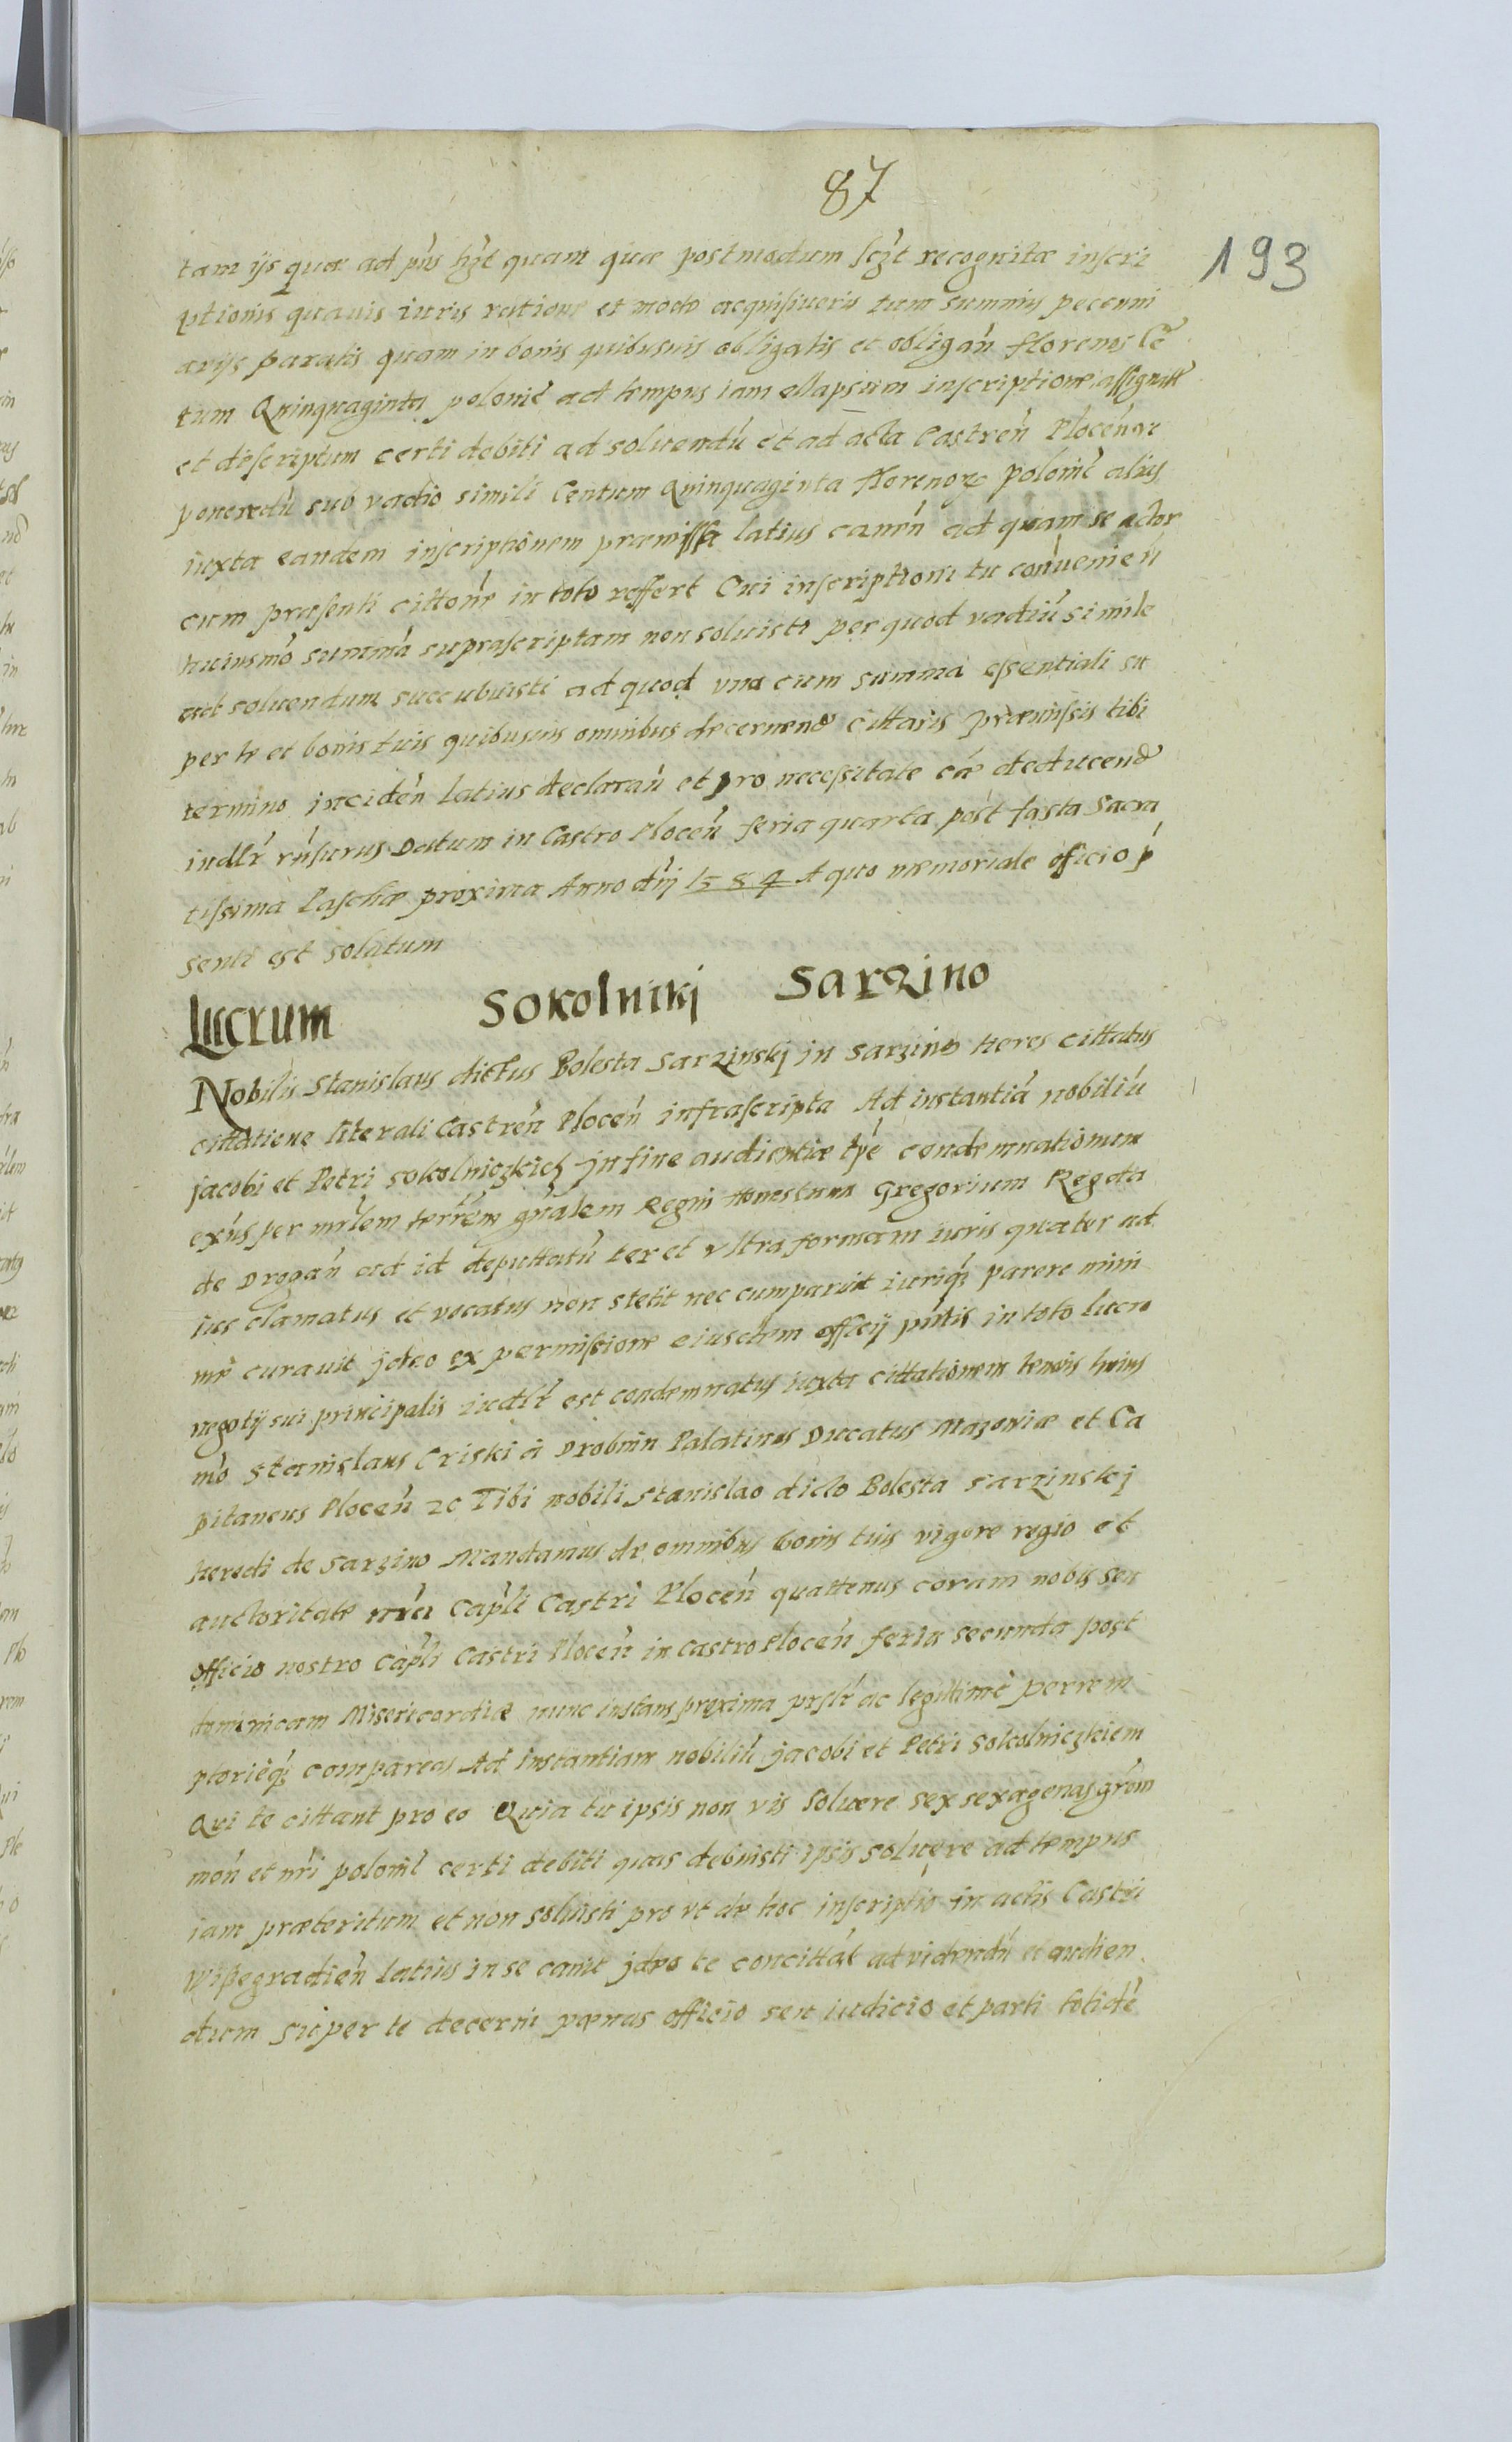 87
193
tam ijs quæ ad pñs hẽt quam quæ postmodum sczt recognitæ inscri
ptionis quauis iuris ratione et modo acquisiueris tum summis pecuni
arijs paratis quam in bonis quibusuis obligatis et obligañ florenos Cẽ
tum Quinquaginta polonic̃ ad tempus iam ellapsum inscriptione assignat
et descriptum certi debiti ad soluendũ et ad acta Castreñ Ploceñ re
ponendũ sub vadio simili Centum Quinquaginta florenorȝ polonic̃ alijs
iuxta eandem inscriptionem præmissa latius caneñ ad quam se actor
cum præsenti cittõne in toto reffert Cui inscriptioni tu conuenieñ
huiusmõ summã suprascriptam non soluisti per quod vadiũ simile
ad soluendum succubuisti ad quod vna cum summa essentiali su
per te et bonis tuis quibusuis omnibus decernend cittaris præmissis tibi
termino incideñ latius declarañ et pro necessitate cæ deducend
iudlr̃ rñsurus Datum in Castro Ploceñ feria quarta post fæsta Sacra
tissima Paschæ proxima Anno dñj 1584 A quo memoriale officio p̃
senti est solutum
Lucrum Sokolnikj Sarzino
Nobilis Stanislaus dictus Bolesta Sarzinskj in Sarzino Heres cittatus
cittatione literali Castreñ Ploceñ infrascripta Ad instantiã nobiliũ
jacobi et Petri Sokolniczkich jn fine audientiæ tp̃e condemnationum
exñs per mr̃lem terr̃em gñalem Regni Honestum Gregorium Regota
de Drogañ ad id deputtatũ ter et vltra formam iuris quater ad
ius clamatus et vocatus non stetit nec cumparuit iuriqȝ parere mini
mẽ curauit jdeo ex permissione eiusdem officij pñtis in toto lucro
negotij sui principalis iudlr̃ est condemnatus iuxta cittationem tenoris huius
mõ Stanislaus Criski à Drobnin Palatinus Ducatus Mazouiæ et Ca
pitaneus Ploceñ ꝛc Tibi nobili Stanislao dicto Bolesta Sarzinskj
heredi de Sarzino Mandamus de omnibus bonis tuis vigore regio et
auctoritate nr̃a Cap̃li Castri Ploceñ quattenus coram nobis seu
officio nostro Cap̃li Castri Ploceñ in Castro Ploceñ feria secunda post
dominicam Misericordiæ nunc instans proxima prslr̃ ac legittimè perrem
ptorièqȝ compareas Ad instantiam nobiliũ jacobi et Petri Sokolniczkiem
Qui te cittant pro eo Quia tu ipsis non vis soluere sex sexagenas gr̃om
moñ et nr̃i polonic̃ certi debiti quas debuisti ipsis soluere ad tempus
iam præteritum et non soluisti pro vt de hoc inscriptio in actis Castri
Wissegradieñ latius in se canit jdeo te concittãt ad videndũ et audien
dum super te decerni pænas officio seu iudicio et parti totidẽ